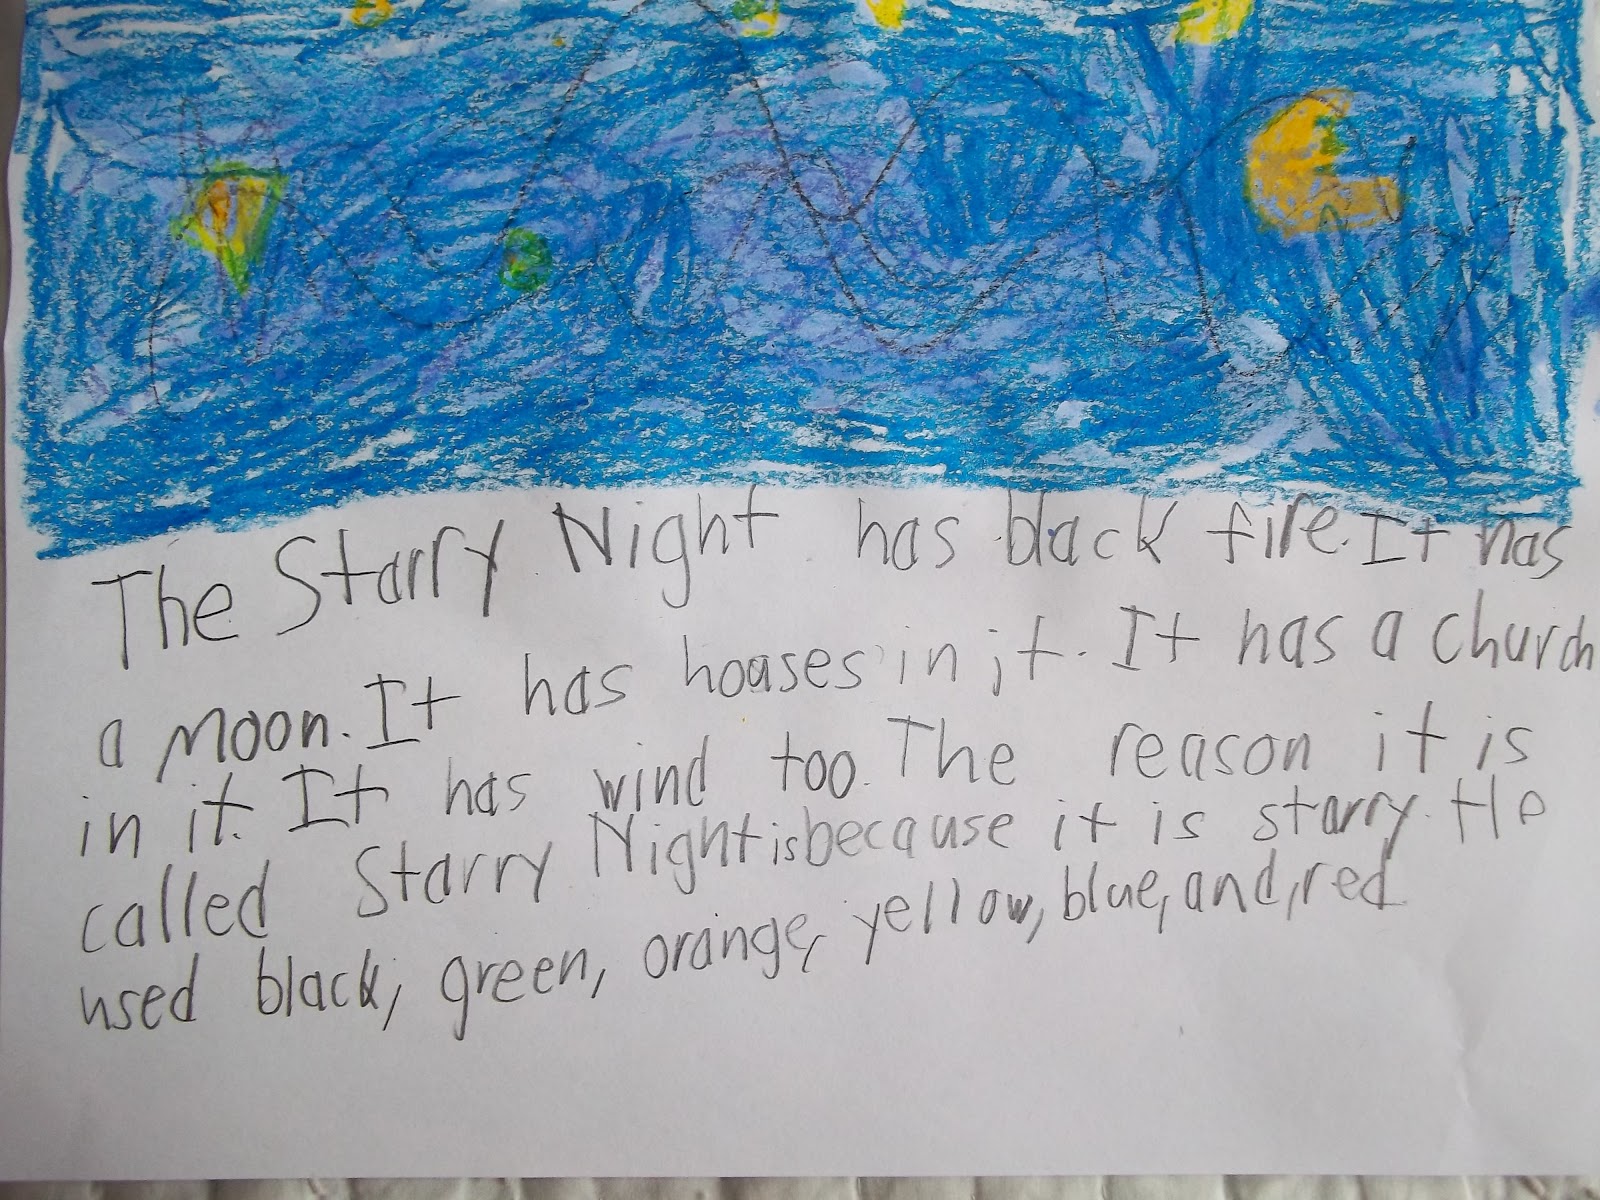 The Starry Night has black fire. It has
a moon. It has houses in it. It has a church
in it. It has wind too. The reason it is
called Starry Night is because it is starry. He
used black, green, orange, yellow, blue, and, red